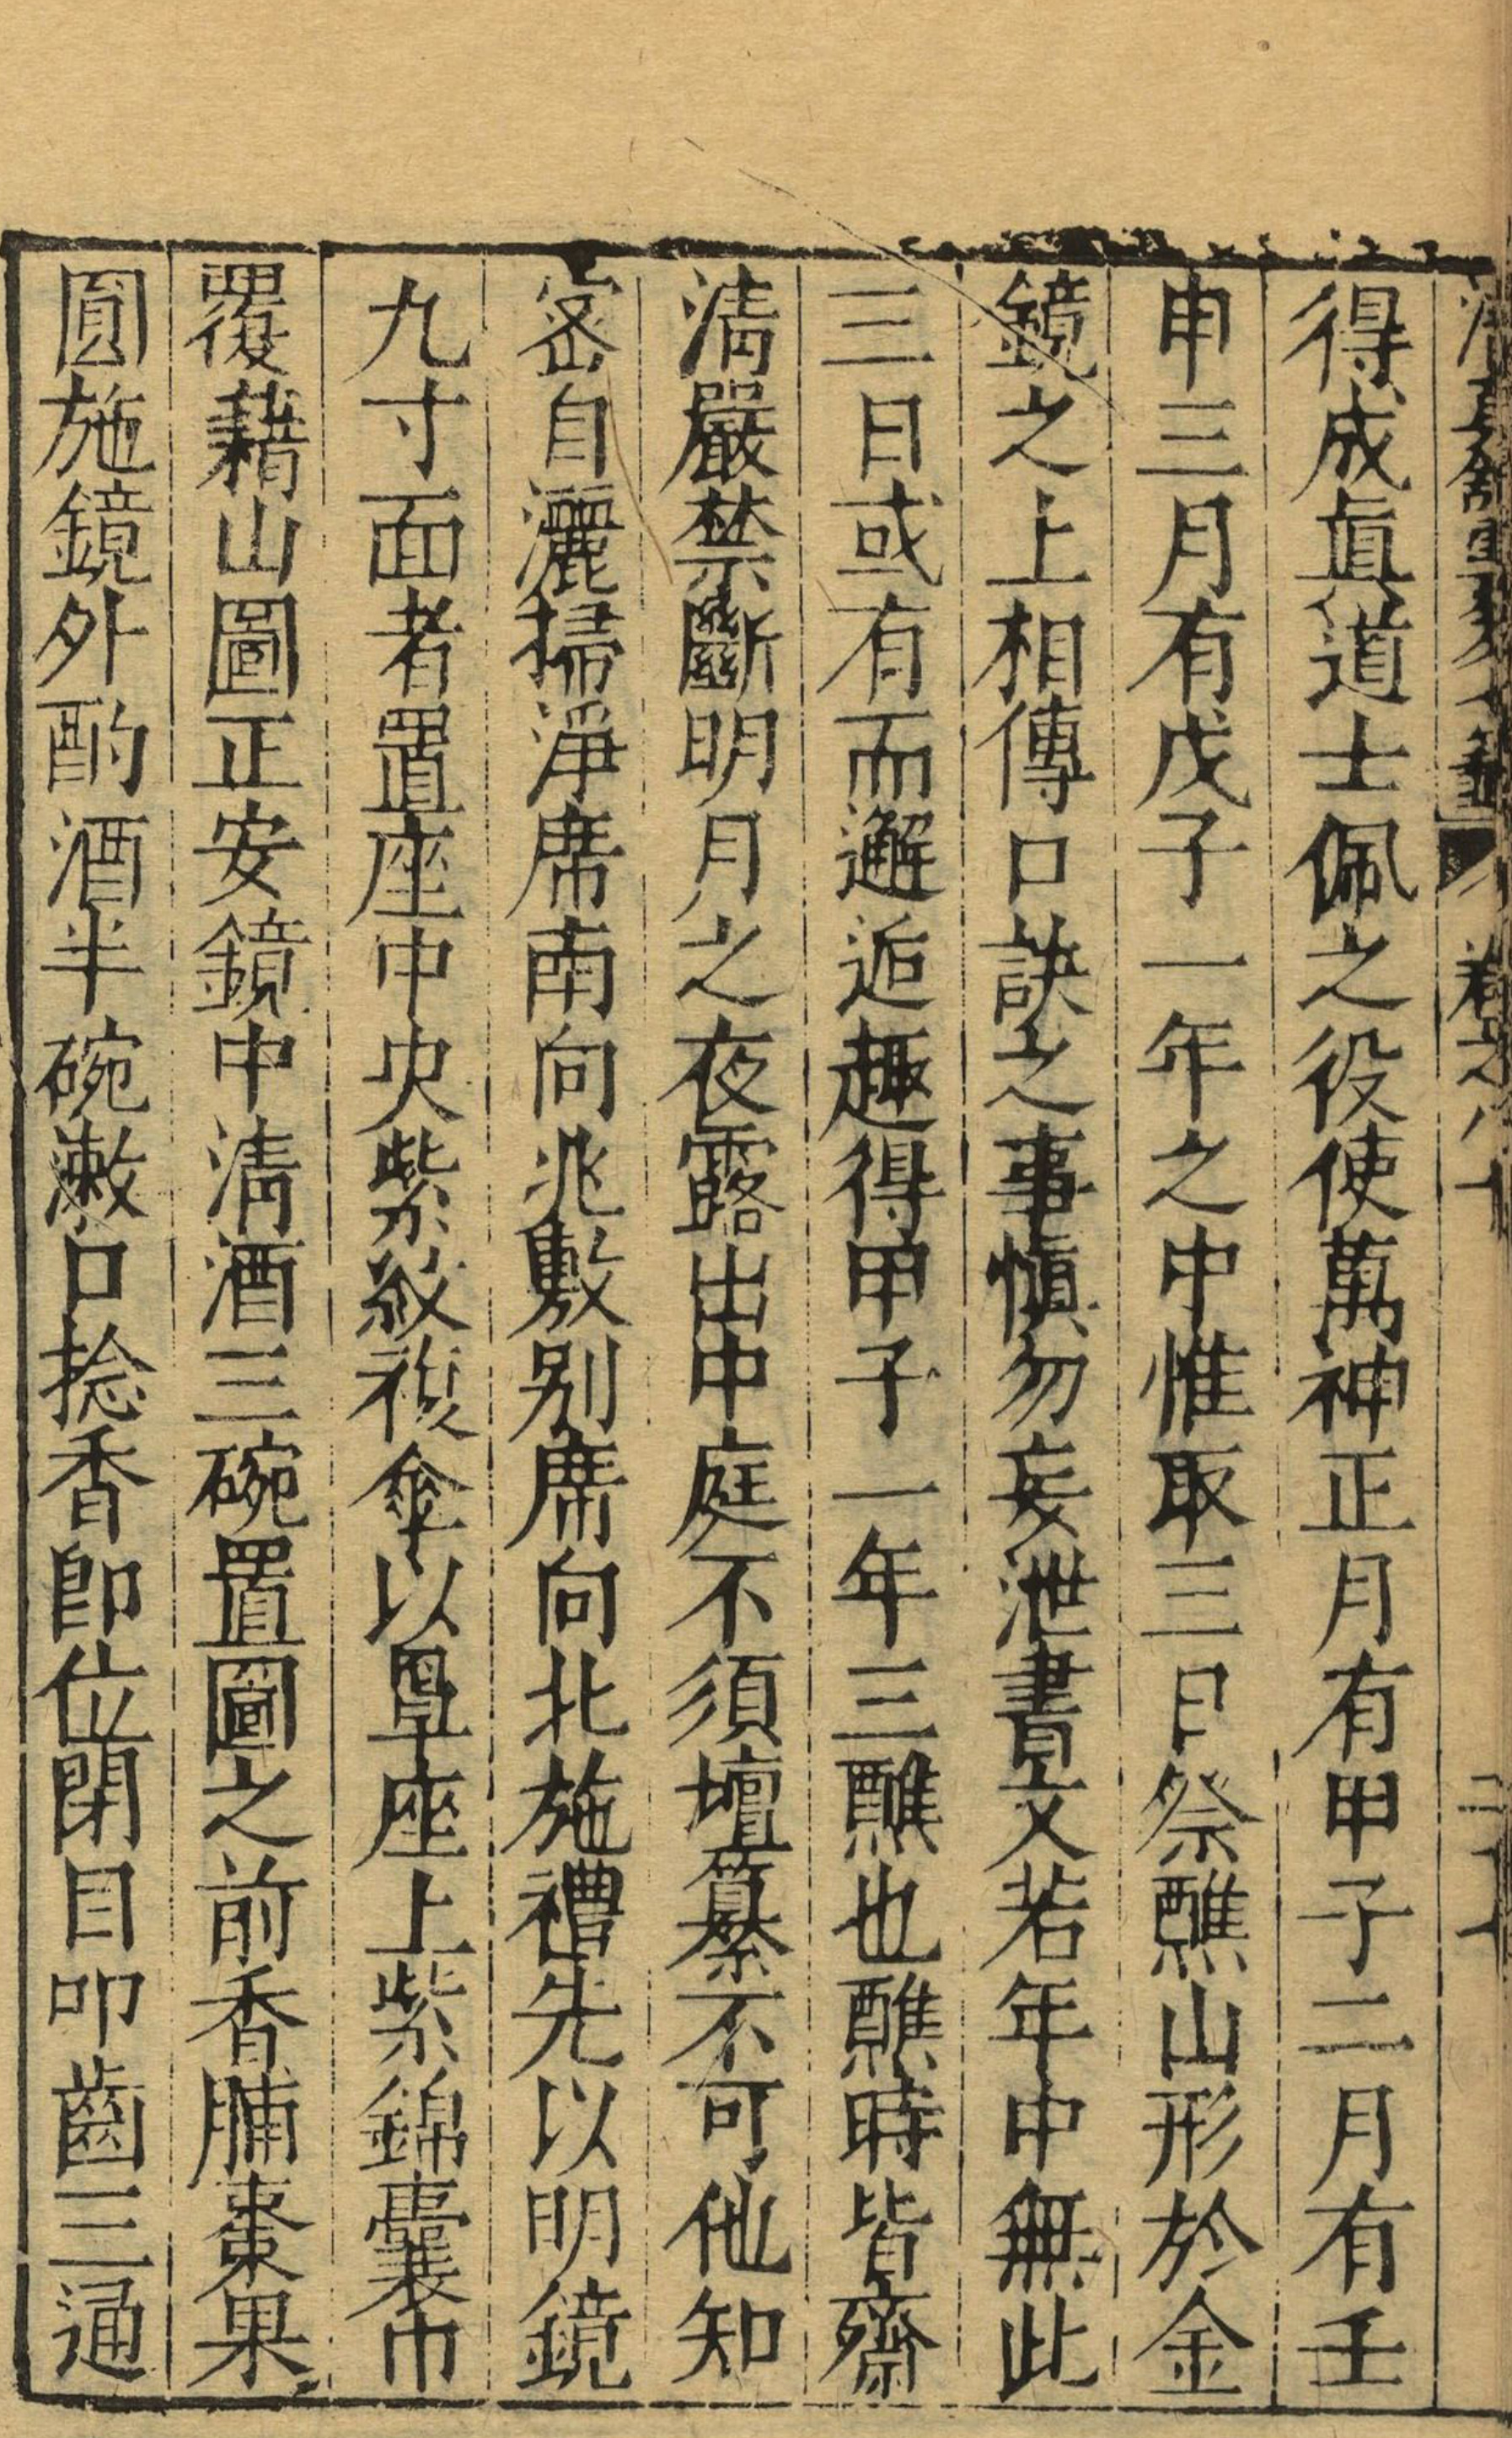 得成眞道士佩之役使萬神正月有甲子二月有壬
申三月有戊子一年之中惟取三日祭醮山形於金
鏡之上相傳口訣之事愼勿妄泄書文若年中無此
三日或有而邂逅趣得甲子一年三醮也醮時皆齋
淸嚴禁斷明月之夜露出中庭不須壇纂不可他知
密自灑掃淨席南向兆敷别席向北施禮先以明鏡
九寸面者置座中央紫紋複傘以覃座上紫錦囊巾
覆藉山圖正安鏡中淸酒三碗置圖之前香脯棗果
圓施鏡外酌酒半碗漱口捻香卽位閉目叩齒三通